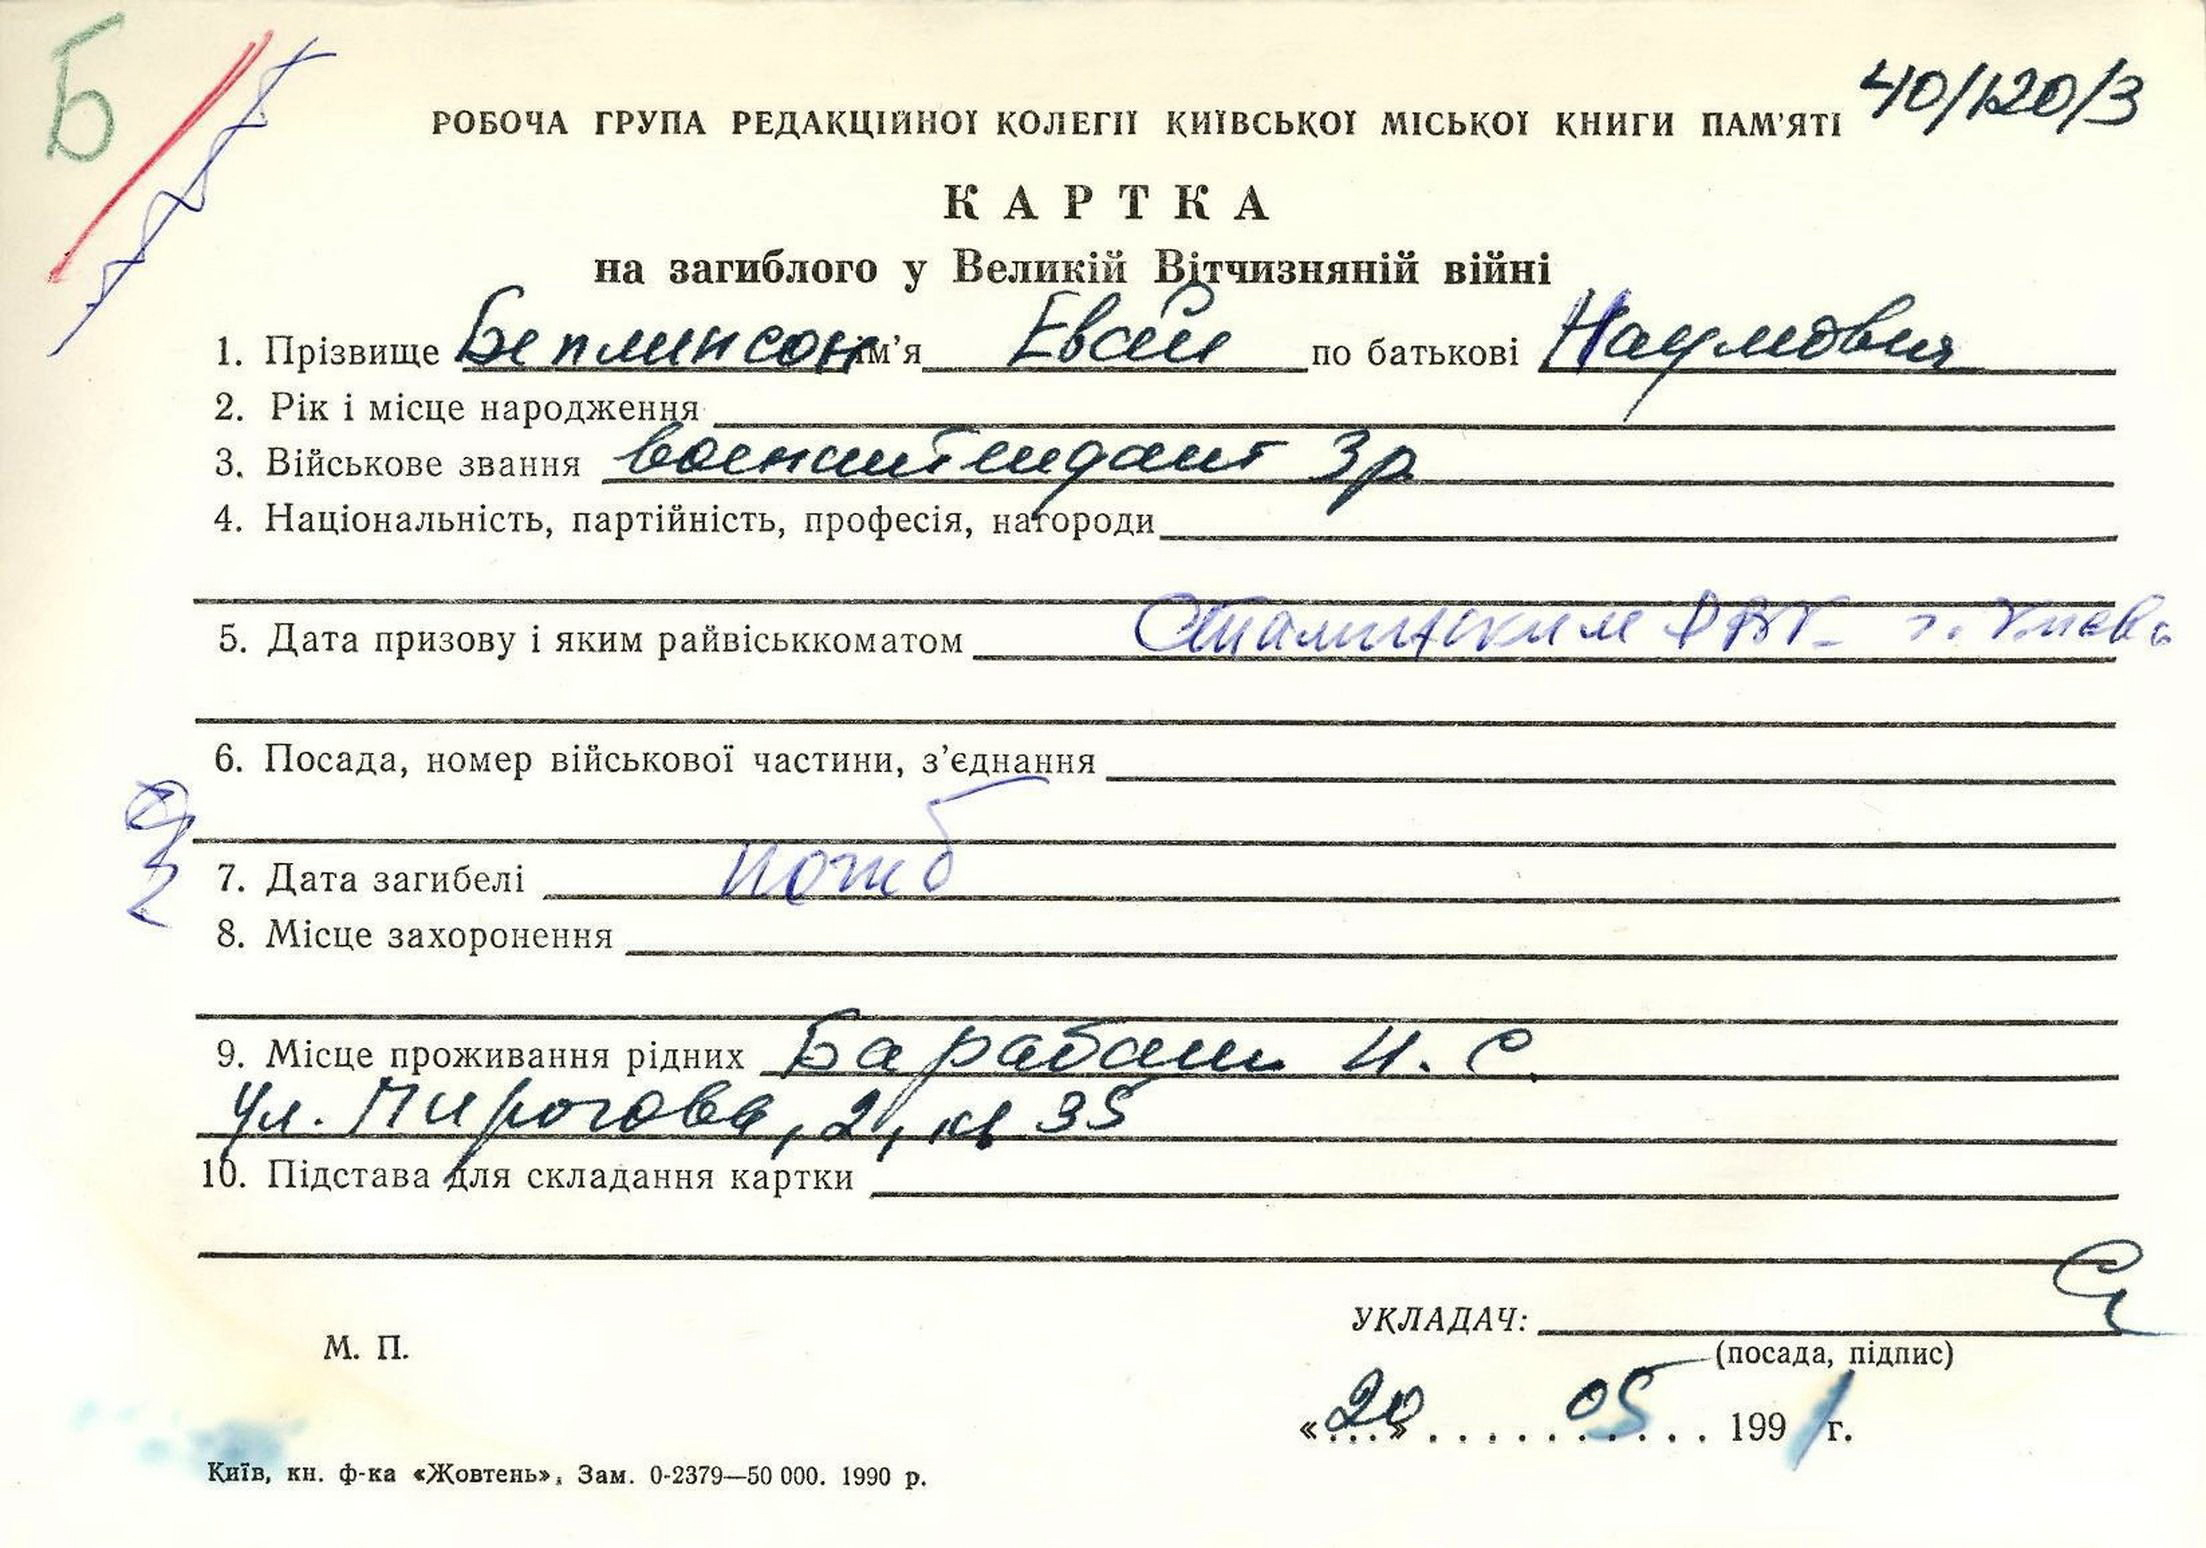 Б
40/120/3
РОБОЧА ГРУПА РЕДАКЦІЙНОЇ КОЛЕГІЇ КИЇВСЬКОЇ МІСЬКОЇ КНИГИ ПАМ'ЯТІ
КАРТКА
на загиблого у Великій Вітчизняній війні
1. Прізвище Беплинсон ім'я Евсей по батькові Наумович
2. Рік і місце народження
3. Військове звання военинтендант 3р
4. Національність, партійність, професія, нагороди
5. Дата призову і яким райвіськкоматом Сталинским РВК г. Киева
6. Посада, номер військової частини, з'єднання
7. Дата загибелі
8. Місце захоронення
9. Місце проживання рідних Барабаш И. С.
ул. Пирогова, 2, кв 35
10. Підстава для складання картки
УКЛАДАЧ:
М. П.
(посада, підпис)
«20» 05 1991 г.
Київ, кн. ф-ка «Жовтень», Зам. 0-2379—50 000. 1990 р.